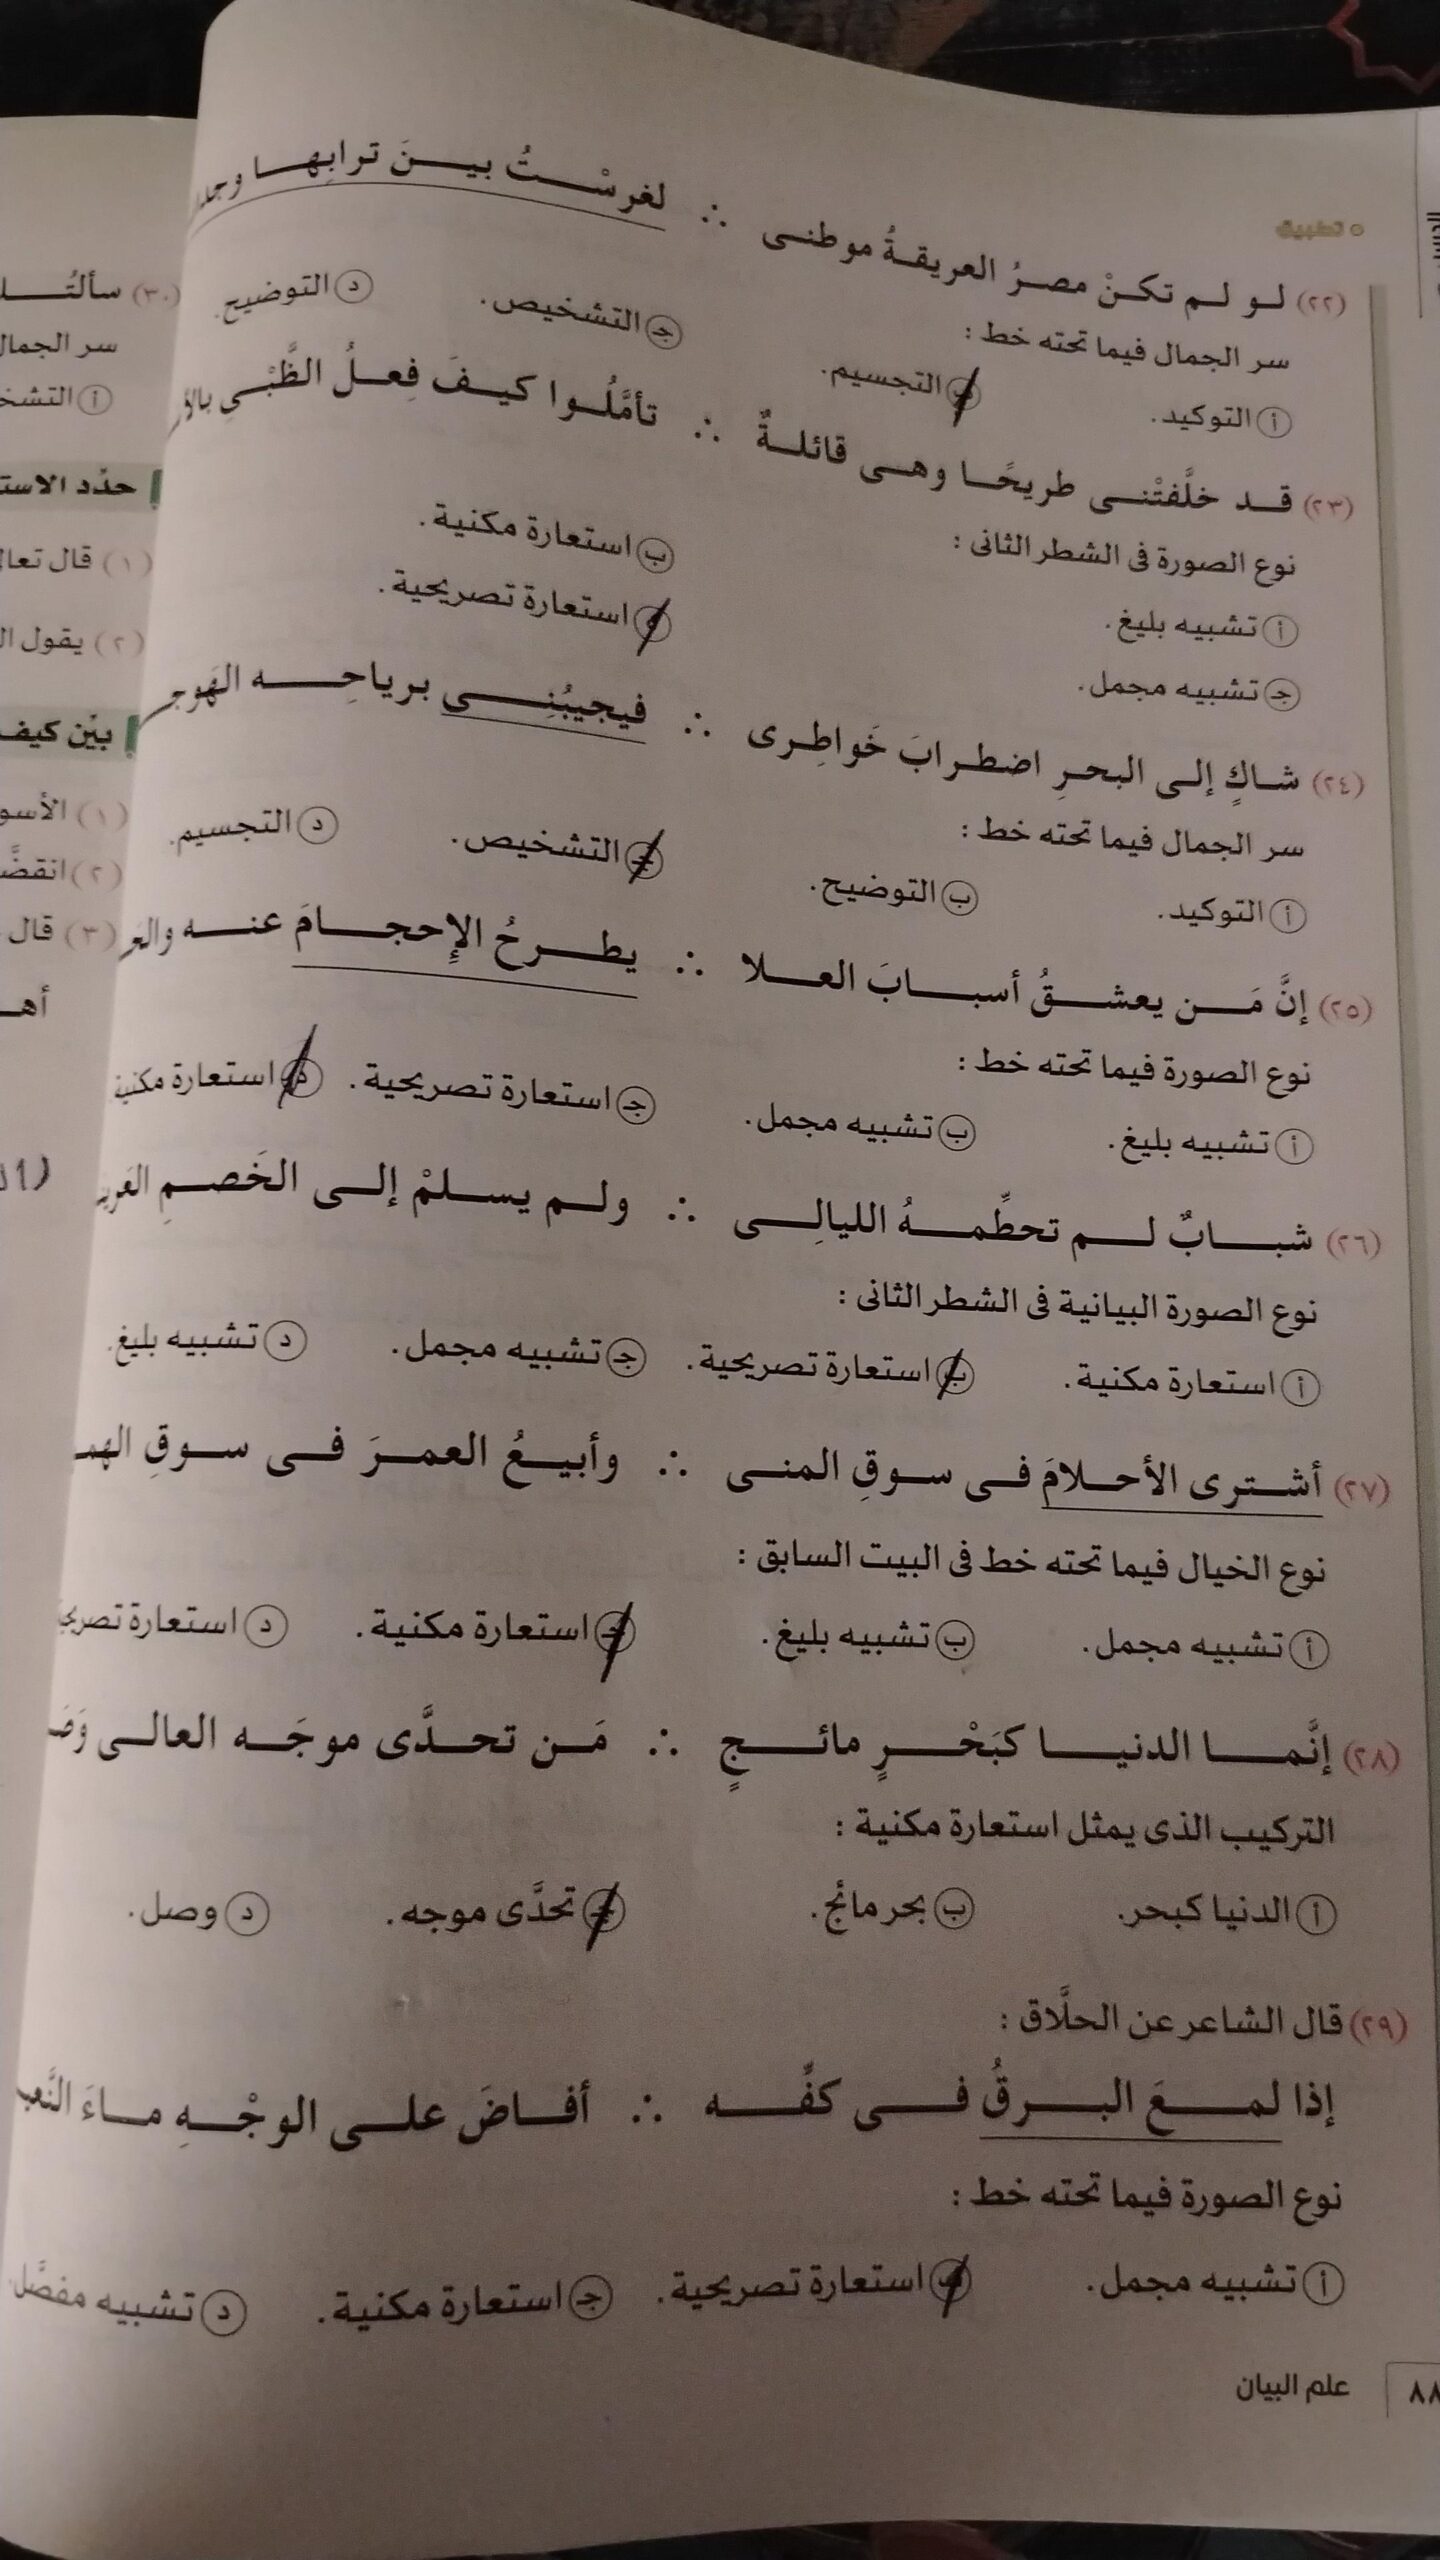 • تطبيق
(٢٢) لو لم تكنْ مصرُ العريقةُ موطنى ∴ لغرسْتُ بينَ ترابِها
سر الجمال فيما تحته خط :
أ التوكيد. ب التجسيم. جـ التشخيص. د التوضيح.
(٢٣) قد خلَّفتْنى طريحًا وهى قائلةٌ ∴ تأمَّلُوا كيفَ فِعلُ الظَّبْىِ
نوع الصورة فى الشطر الثانى :
أ تشبيه بليغ. ب استعارة مكنية.
جـ تشبيه مجمل. د استعارة تصريحية.
(٢٤) شاكٍ إلى البحرِ اضطرابَ خَواطِرى ∴ فيجيبُنِى برياحِه
سر الجمال فيما تحته خط :
أ التوكيد. ب التوضيح. جـ التشخيص. د التجسيم.
(٢٥) إنَّ مَن يعشقُ أسبابَ العلا ∴ يطرحُ الإحجامَ عنه
نوع الصورة فيما تحته خط :
أ تشبيه بليغ. ب تشبيه مجمل. جـ استعارة تصريحية. د استعارة مكنية
(٢٦) شبابٌ لم تحطِّمهُ الليالِى ∴ ولم يسلمْ إلى الخَصمِ
نوع الصورة البيانية فى الشطر الثانى :
أ استعارة مكنية. ب استعارة تصريحية. جـ تشبيه مجمل. د تشبيه بليغ.
(٢٧) أشترى الأحلامَ فى سوقِ المنى ∴ وأبيعُ العمرَ فى سوقِ
نوع الخيال فيما تحته خط فى البيت السابق :
أ تشبيه مجمل. ب تشبيه بليغ. جـ استعارة مكنية. د استعارة
(٢٨) إنَّما الدنيا كبَحْرٍ مائجٍ ∴ مَن تحدَّى موجَه العالى
التركيب الذى يمثل استعارة مكنية :
أ الدنيا كبحر. ب بحر مائج. جـ تحدَّى موجه. د وصل.
(٢٩) قال الشاعر عن الحلَّاق :
إذا لمعَ البرقُ فى كفِّه ∴ أفاضَ على الوجْهِ ماءَ
نوع الصورة فيما تحته خط :
أ تشبيه مجمل. ب استعارة تصريحية. جـ استعارة مكنية. د تشبيه مفصَّل
٨٨ علم البيان
(٣٠)
سر الجمال
أ
حدِّد
(١) قال
(٢) يقول
بيِّن كيف
(١)
(٢)
(٣) قال